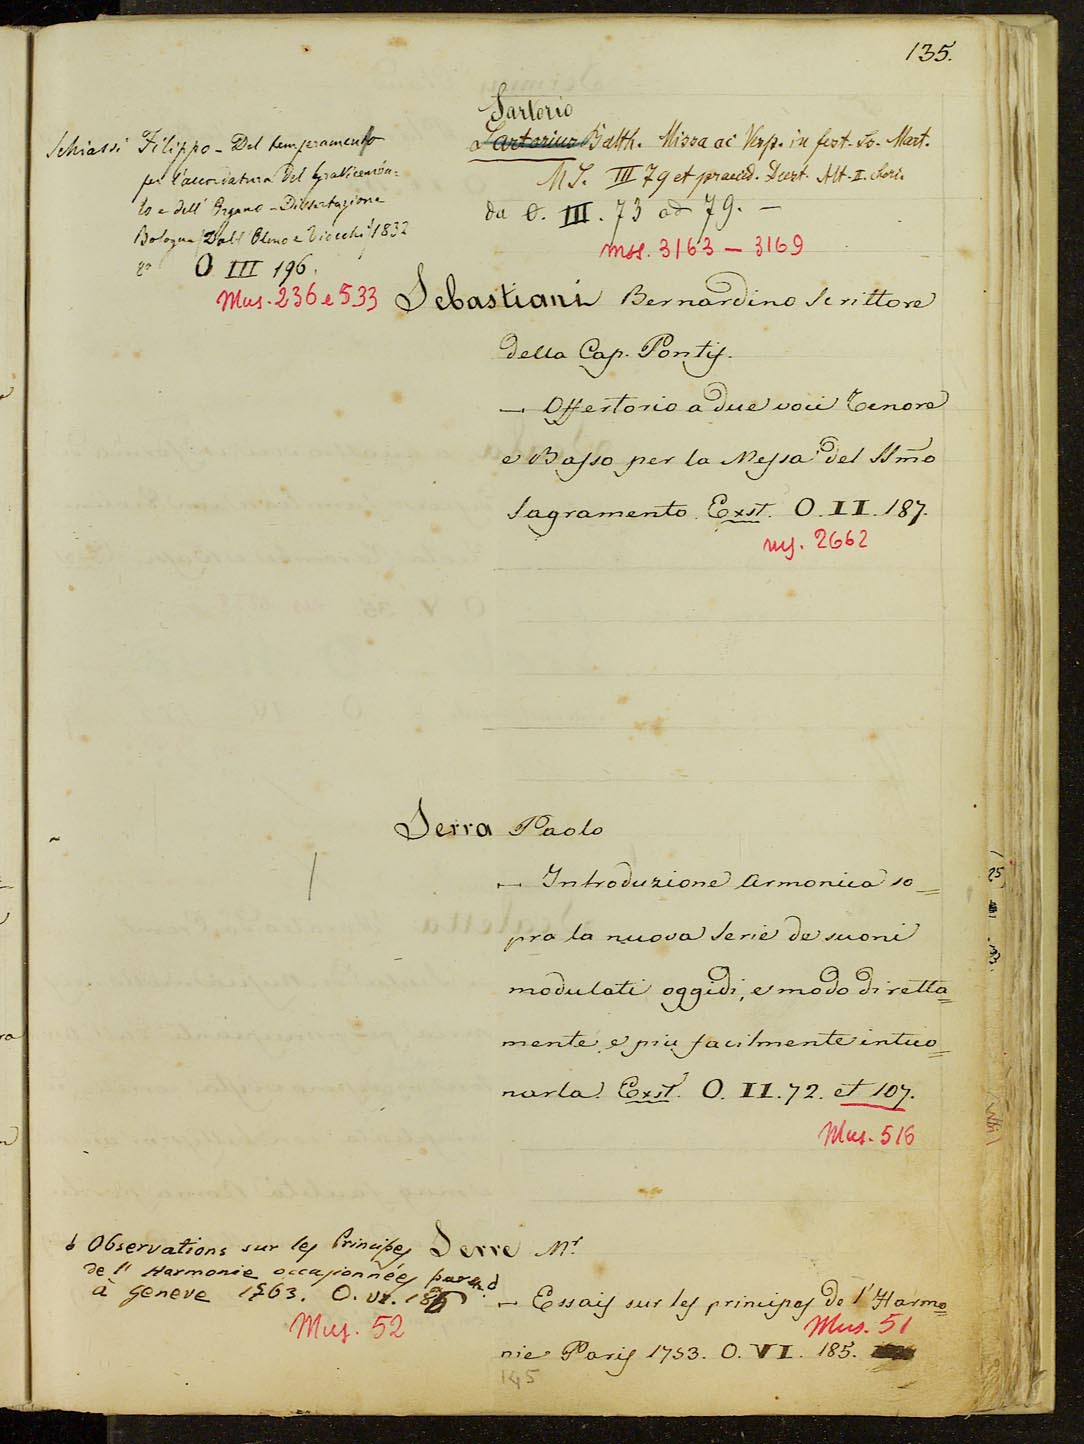 135.
Sartorio
Sartorius Balth. Missa ac Vesp. in fest. S. Mart.
MS. III 79 et praeced. Deest. Alt. II. Chori.
da O. III. 73 ad 79. —
mss. 3163 — 3169
Schiassi Filippo - Del temperamento
per l'accordatura del Gravicemba=
lo e dell' Organo - Dissertazione
Bologna Dall' Olmo e Tiocchi 1832
8o O III 196.
Mus. 236 e 533
Sebastiani Bernardino Scrittore
della Cap. Pontif.
— Offertorio a due voci Tenore
e Basso per la Messa del SSmo
Sagramento. Exst. O. II. 187.
ms. 2662
Serra Paolo
— Introduzione Armonica so=
pra la nuova Serie de suoni
modulati oggidi, e modo diretta=
mente e più facilmente intuo=
narla. Exst. O. II. 72. et 107.
Mus. 516
Serre Mr
— Essais sur les principes de l'Harmo=
Mus. 51
nie Paris 1753. O. VI. 185.
145
Observations sur les Principes
de l'Harmonie occasionnées par
à Geneve 1763. O. VI.
Mus. 52